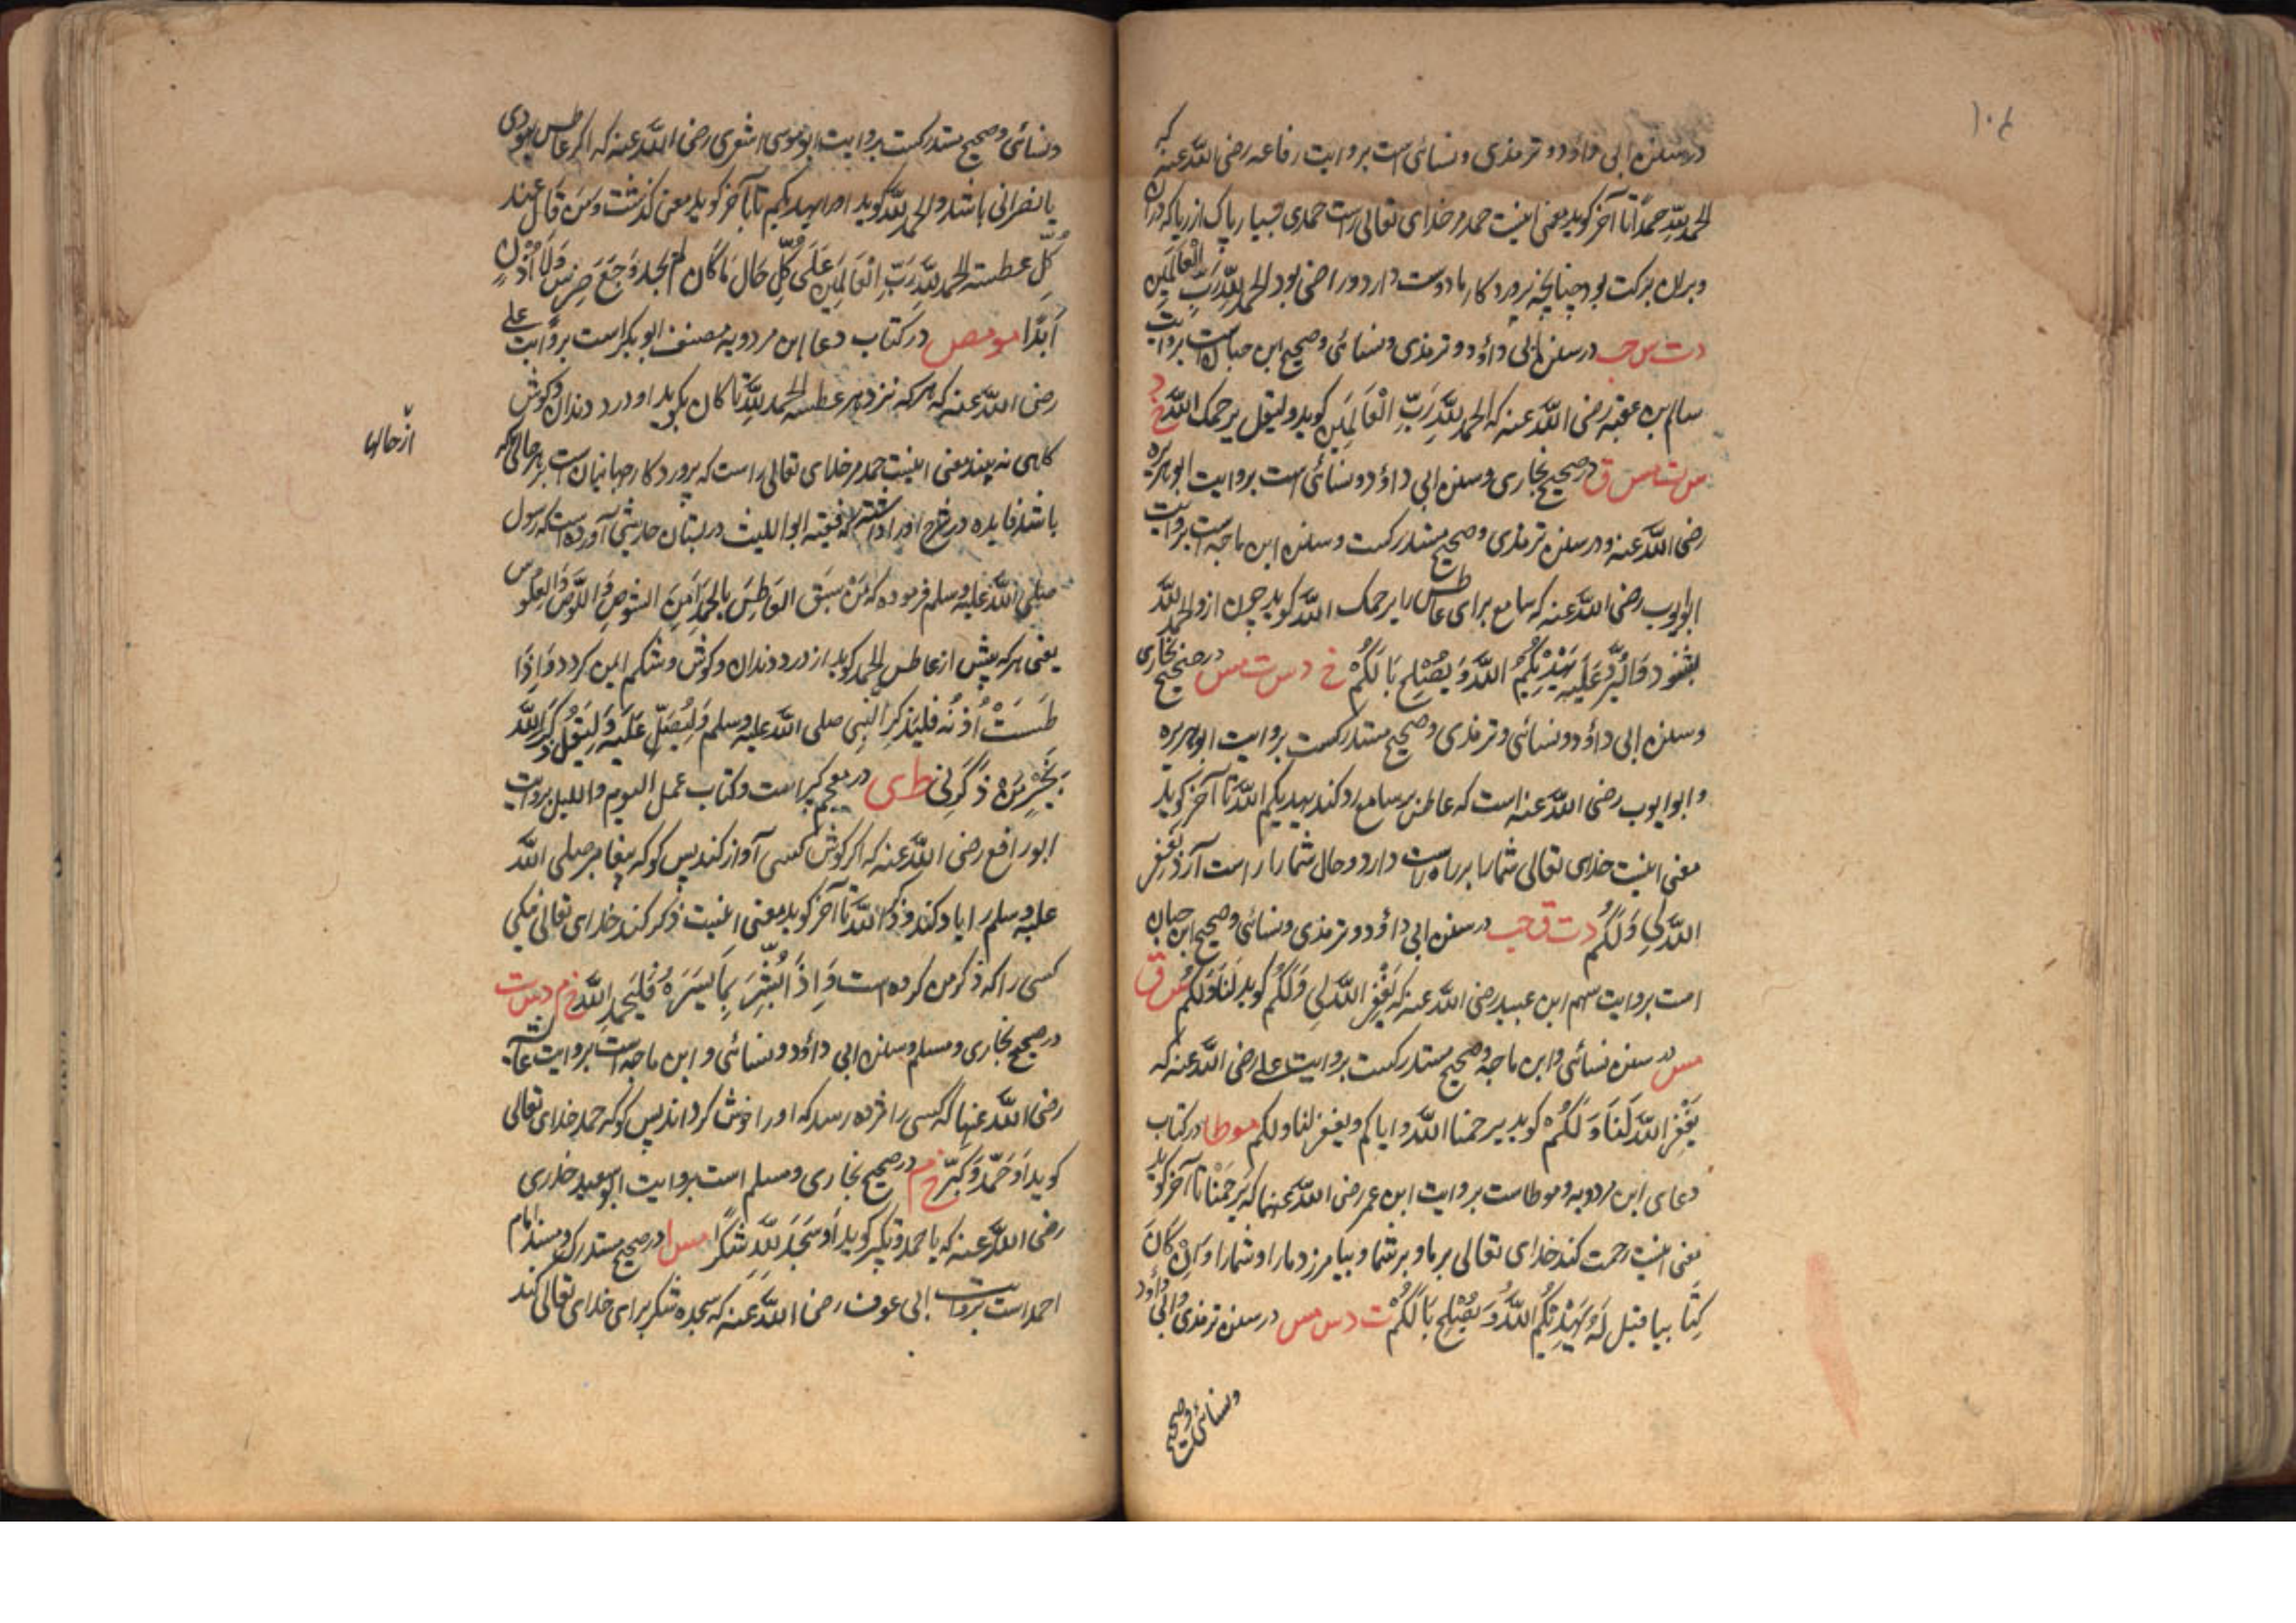 ۱۰۶
در سنن ابی داؤد و ترمذی و نسائی است بروایت رفاعه رضی الله عنه که
الحمد لله حمدًا تا آخر گوید معنی اینست حمد مر خدای تعالی راست حمدی بسیار پاک از ریا که دران
و بران برکت بود چنانچه پرورد کار ما دوست دارد و راضی بود الحمد لله رَبِّ الْعَالَمِين
د ت س حب در سنن ابی داؤد و ترمذی و نسائی و صحیح ابن حبان است بروایت
سالم بن عقبه رضی الله عنه که الحمد لله رَبِّ الْعَالَمِين گوید و لیقل یرحمک الله خ د
س ت مس ق در صحیح بخاری و سنن ابی داؤد و نسائی است بروایت ابو هریره
رضی الله عنه و در سنن ترمذی و صحیح مستدرکست و سنن ابن ماجه است بروایت
ابو ایوب رضی الله عنه که سامع برای عاطس را یرحمک الله گوید چون ازو الحمد لله
بشنود وَلْيَرُدَّ عَلَيْهِ يَهْدِيكُمُ اللهُ وَيُصْلِحُ بَالَكُمْ خ د س ت مس در صحیح بخاری
و سنن ابی داؤد و نسائی و ترمذی و صحیح مستدرکست بروایت ابو هریره
و ابو ایوب رضی الله عنه است که عاطس بر سامع رد کند یهدیکم الله تا آخر گوید
معنی اینست خدای تعالی شما را بر راه راست دارد و حال شما را راست آرد یَغْفِر
اللهُ لِي وَلَكُمْ د ت ق حب در سنن ابی داؤد و ترمذی و نسائی و صحیح ابن حبان
است بروایت سهم ابن عبید رضی الله عنه که یَغْفِرُ اللهُ لِي وَلَكُمْ گوید لَنَا وَلَكُمْ س ق
مس در سنن نسائی و ابن ماجه و صحیح مستدرکست بروایت علی رضی الله عنه که
یَغْفِرُ اللهُ لَنَا وَلَكُمْ گوید یرحمنا الله و ایاکم و یغفر لنا ولکم مو طا در کتاب
دعای ابن مردویه و موطا ست بروایت ابن عمر رضی الله عنهما که یَرحَمُنَا تا آخر گوید
معنی اینست رحمت کند خدای تعالی بر ما و بر شما و بیامرزد ما را و شما را وَاِنْ كَانَ
كِتَابيا قیل لَهُ يَهْدِيكُمُ اللهُ وَيُصْلِحُ بَالَكُمْ ت د س مس در سنن ترمذی و ابی داؤد
و نسائی و صحیح
و نسائی و صحیح مستدرکست بروایت ابو موسی اشعری رضی الله عنه که اگر عاطس یهودی
یا نصرانی باشد و الحمد لله گوید او را یهدیکم تا آخر گوید معنی گذشت وَمَنْ قَالَ عِند
كُلِّ عطسته الحمد لله رَبِّ الْعَالَمِينَ عَلَى كُلِّ حَالٍ مَا كَانَ لم یجد وَجَعَ ضِرسٍ وَلَا أُذُنٍ
أَبَدًا مو مص در کتاب دعا ابن مردویه و مصنف ابو بکر است بروایت علی
رضی الله عنه که هر که نزد هر عطسه الحمد لله تا کان بگوید او درد دندان و گوش
گاهی نه بیند معنی اینست حمد مر خدای تعالی راست که پرورد کار جهانیان است بر هر حالی که
از حالها
باشد فایده در شرح اوراد گفته که فقیه ابو اللیث در بستان حدیثی آورده است که رسول
صلی الله علیه و سلم فرموده که مَنْ سَبَقَ العَاطِسَ بالحمدِ أَمِنَ الشوص وَاللَّوْص وَالعِلَّوص
یعنی هر که پیش از عاطس الحمد گوید از درد دندان و گوش و شکم ایمن گردد وَاِذَا
طَنَّتْ أُذُنُه فلیذکر النبی صلی الله علیه و سلم وَلْيُصَلِّ عَلَيْهِ وَلْيَقُلْ ذَكَرَ اللهُ
بِخَيْرٍ مَن ذَكَرَنِي ط ی در معجم کبیر است و کتاب عمل الیوم و اللیل بروایت
ابو رافع رضی الله عنه که اگر گوش کسی آواز کند پس گو که پیغامبر صلی الله
علیه و سلم را یاد کند و ذکر الله تا آخر گوید معنی اینست ذکر کند خدای تعالی نیکی
کسی را که ذکر من کرده است وَاِذَا بُشِّرَ بِمَا يَسُرُّهُ فَلْيَحْمَدِ اللهَ خ م د س ت
در صحیح بخاری و مسلم و سنن ابی داؤد و نسائی و ابن ماجه است بروایت عائشه
رضی الله عنها که کسی را مژده رسد که او را خوش گرداند پس گو که حمد خدای تعالی
گوید اَو حَمِدَ وَكَبَّرَ خ م در صحیح بخاری و مسلم است بروایت ابو سعید خدری
رضی الله عنه که یا حمد و تکبیر گوید اَو سَجَدَ لِلَّهِ شُكْرًا مس ا در صحیح مستدرک و مسند امام
احمد است بروایت ابی عوف رضی الله عنه که سجده شکر برای خدای تعالی کند